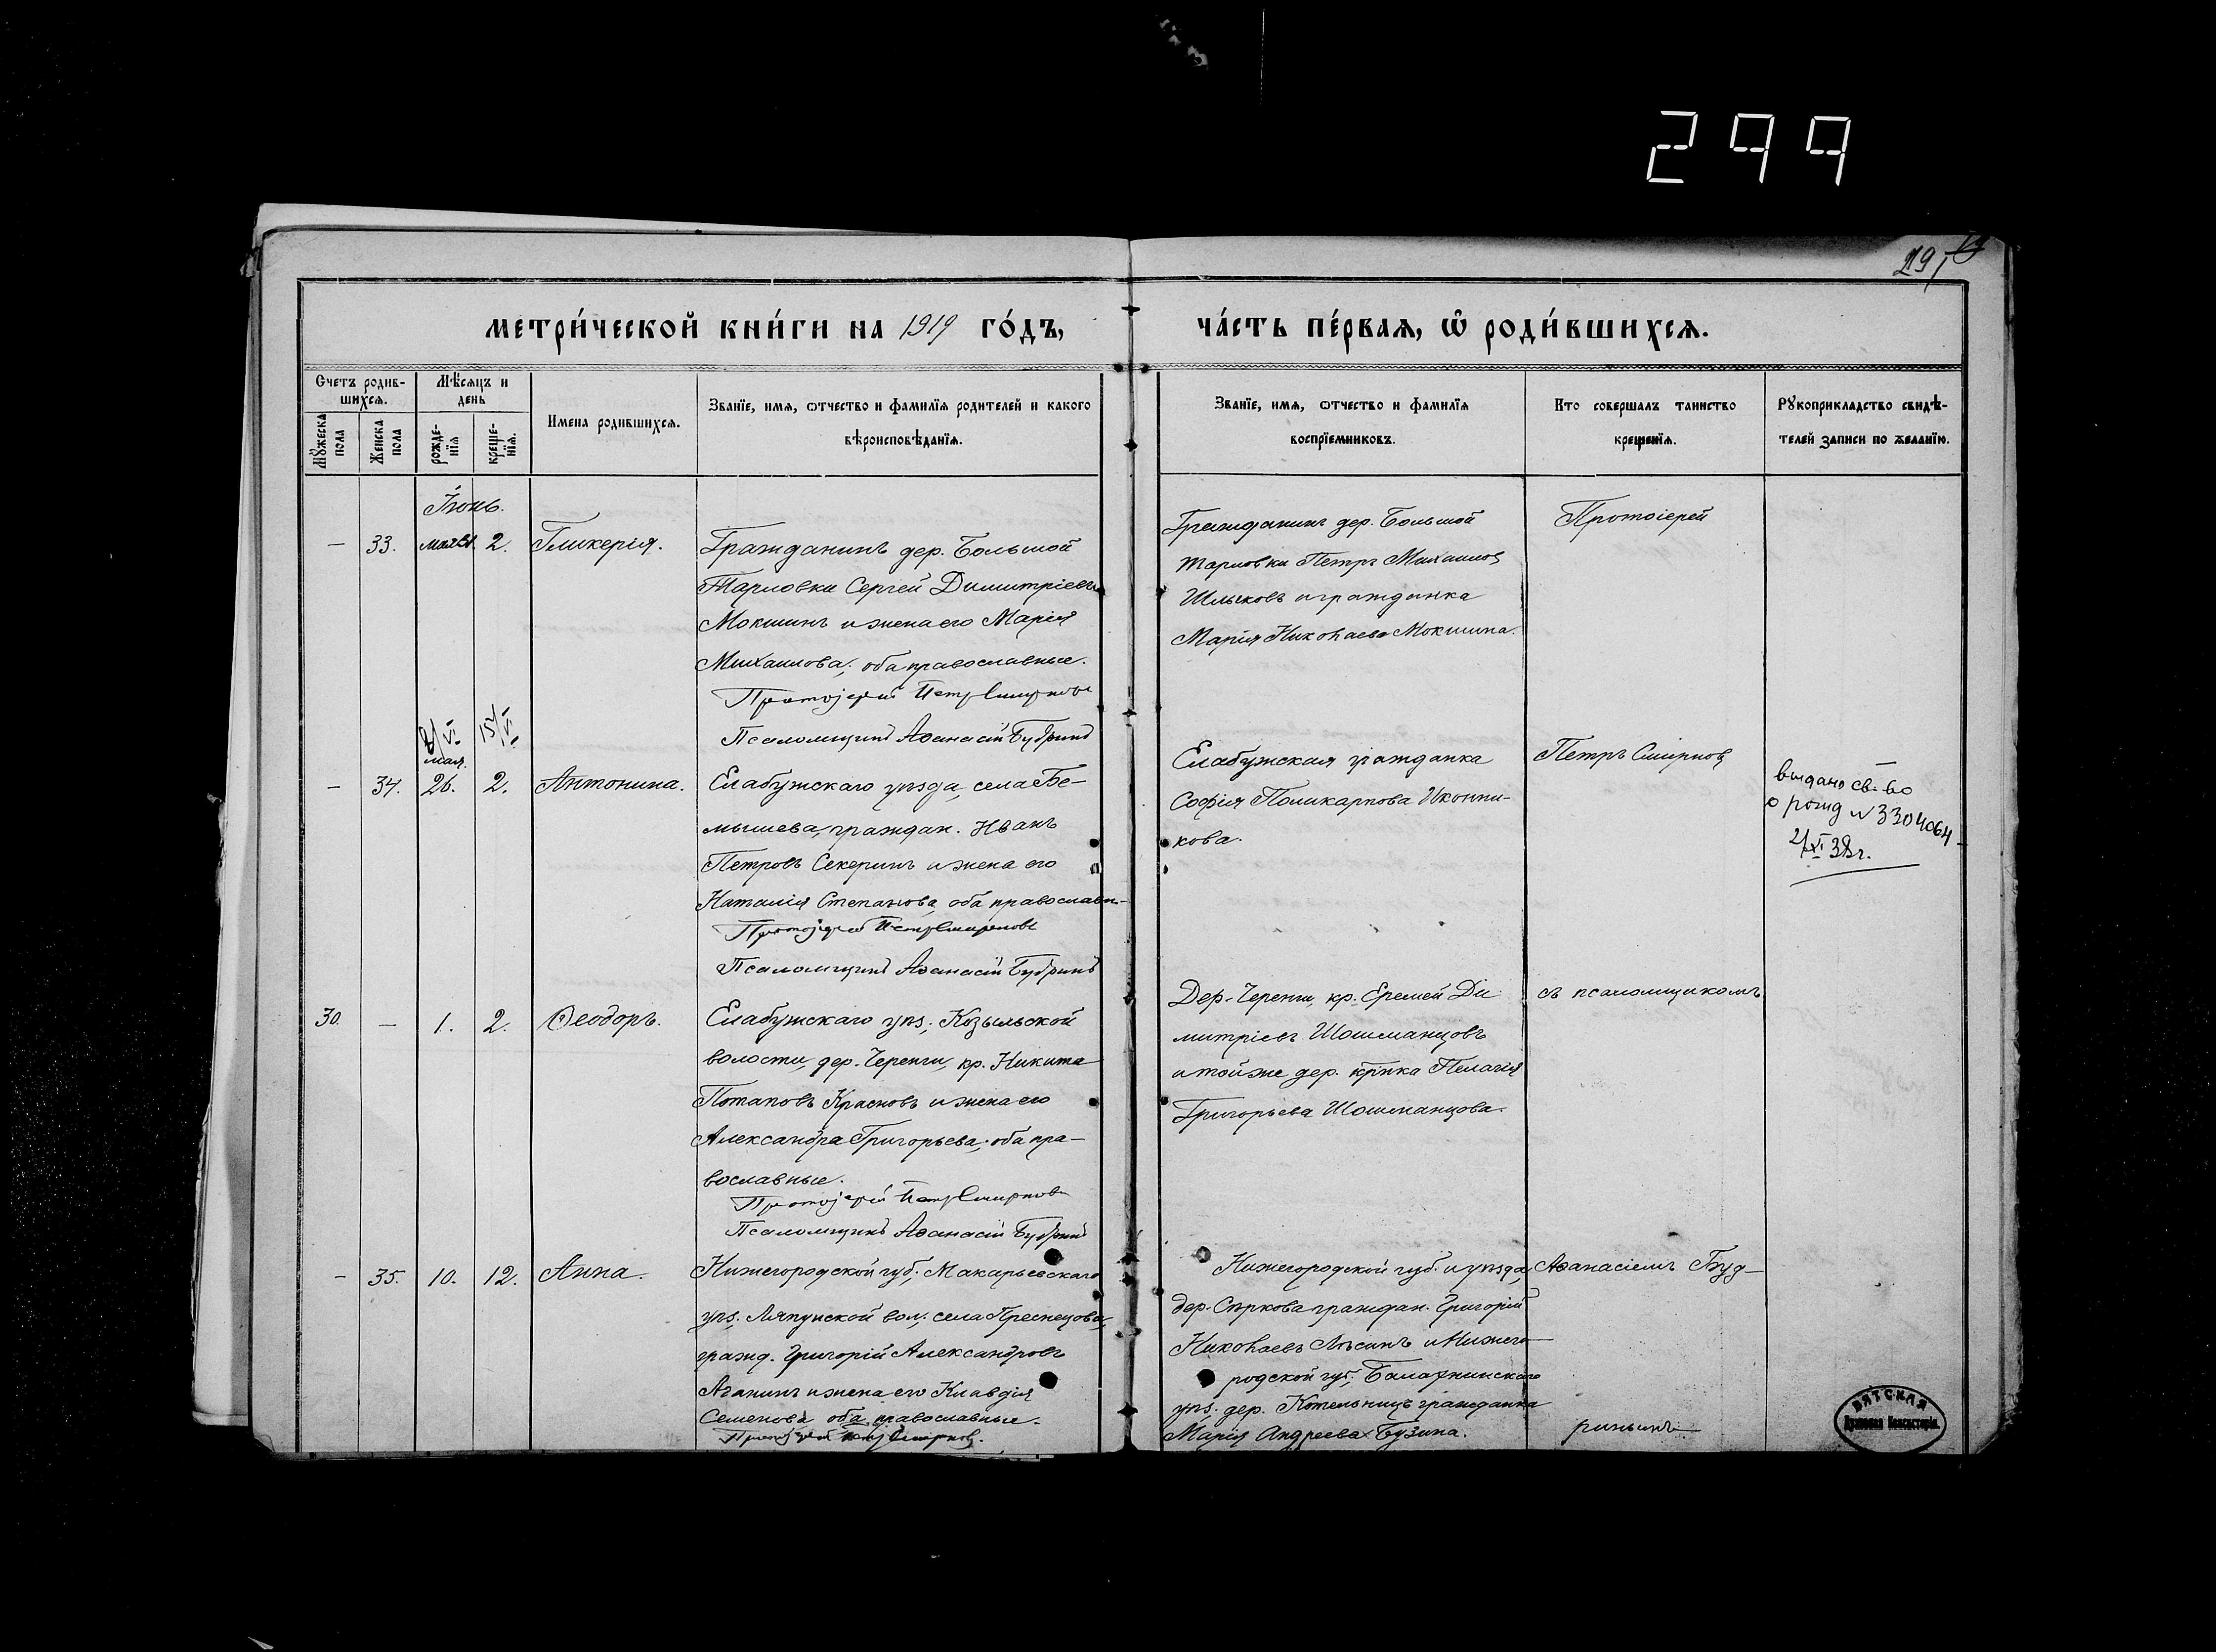 299
291
метри́ческой кни́ги на 1919 го́дъ,
ча́сть пе́рвая, ѡ роди́вшихся.
Счетъ родив-
шихся.
Мѣсяцъ и
день
Мужеска
пола
Женска
пола
рожде-
нїя
креще-
нїя.
Имена родившихся.
Званїе, имя, ѡтчество и фамилїя родителей и какого
вѣроисповѣданїя.
Званїе, имя, ѡтчество и фамилїя
воспрїемниковъ.
Кто совершалъ таинство
крещенїя.
Рукоприкладство свидѣ-
телей записи по желанїю.
Іюнь.
— 33. мая 2. Гликерія.
Гражданинъ дер. Большой
Тарловки Сергей Димитріевъ
Мокшинъ и жена его Марія
Михаилова, оба православные.
Протоіерей Петръ Смирновъ
Псаломщикъ Аѳанасій Будринъ
Гражданинъ дер. Большой
Тарловки Петръ Михаилов
Шлыковъ и гражданка
Марія Николаева Мокшина.
Протоіерей
8/VI 15/VI
мая.
— 34. 26. 2. Антонина.
Елабужскаго уѣзда, села Бе-
мышева, граждан. Иванъ
Петровъ Секеринъ и жена его
Наталія Степанова, оба православн.
Протоіерей Петръ Смирновъ
Псаломщикъ Аѳанасій Будринъ
Елабужская гражданка
Софія Поликарпова Иконни-
кова.
Петръ Смирнов
выдано св-во
о рожд № 3304064
2/XI 38г.
30. — 1. 2. Ѳеодоръ.
Елабужскаго уѣз. Козыльской
волости, дер. Черенги, кр. Никита
Потаповъ Красновъ и жена его
Александра Григорьева, оба пра-
вославные.
Протоіерей Петръ Смирновъ
Псаломщикъ Аѳанасій Будринъ
Дер. Черенги, кр. Еремей Ди-
митріевъ Шошманцовъ
и той же дер. кр-нка Пелагія
Григорьева Шошманцова.
съ псаломщикомъ
— 35. 10. 12. Анна.
Нижегородской губ. Макарьевскаго
уѣз. Ляпунской вол. села Преснецова,
гражд. Григорій Александровъ
Аганинъ и жена его Клавдія
Семенова оба православные.
Протоіерей Петръ Смирнов.
Нижегородской губ. и уѣзда,
дер. Сѣркова граждан. Григорій
Николаевъ Лѣсинъ и Нижего-
родской губ. Балахнинскаго
уѣз. дер. Котельницъ гражданка
Марія Андреева Бузина.
Аѳанасіемъ Буд-
ринымъ
ВЯТСКАЯ
Духовная Консисторія.